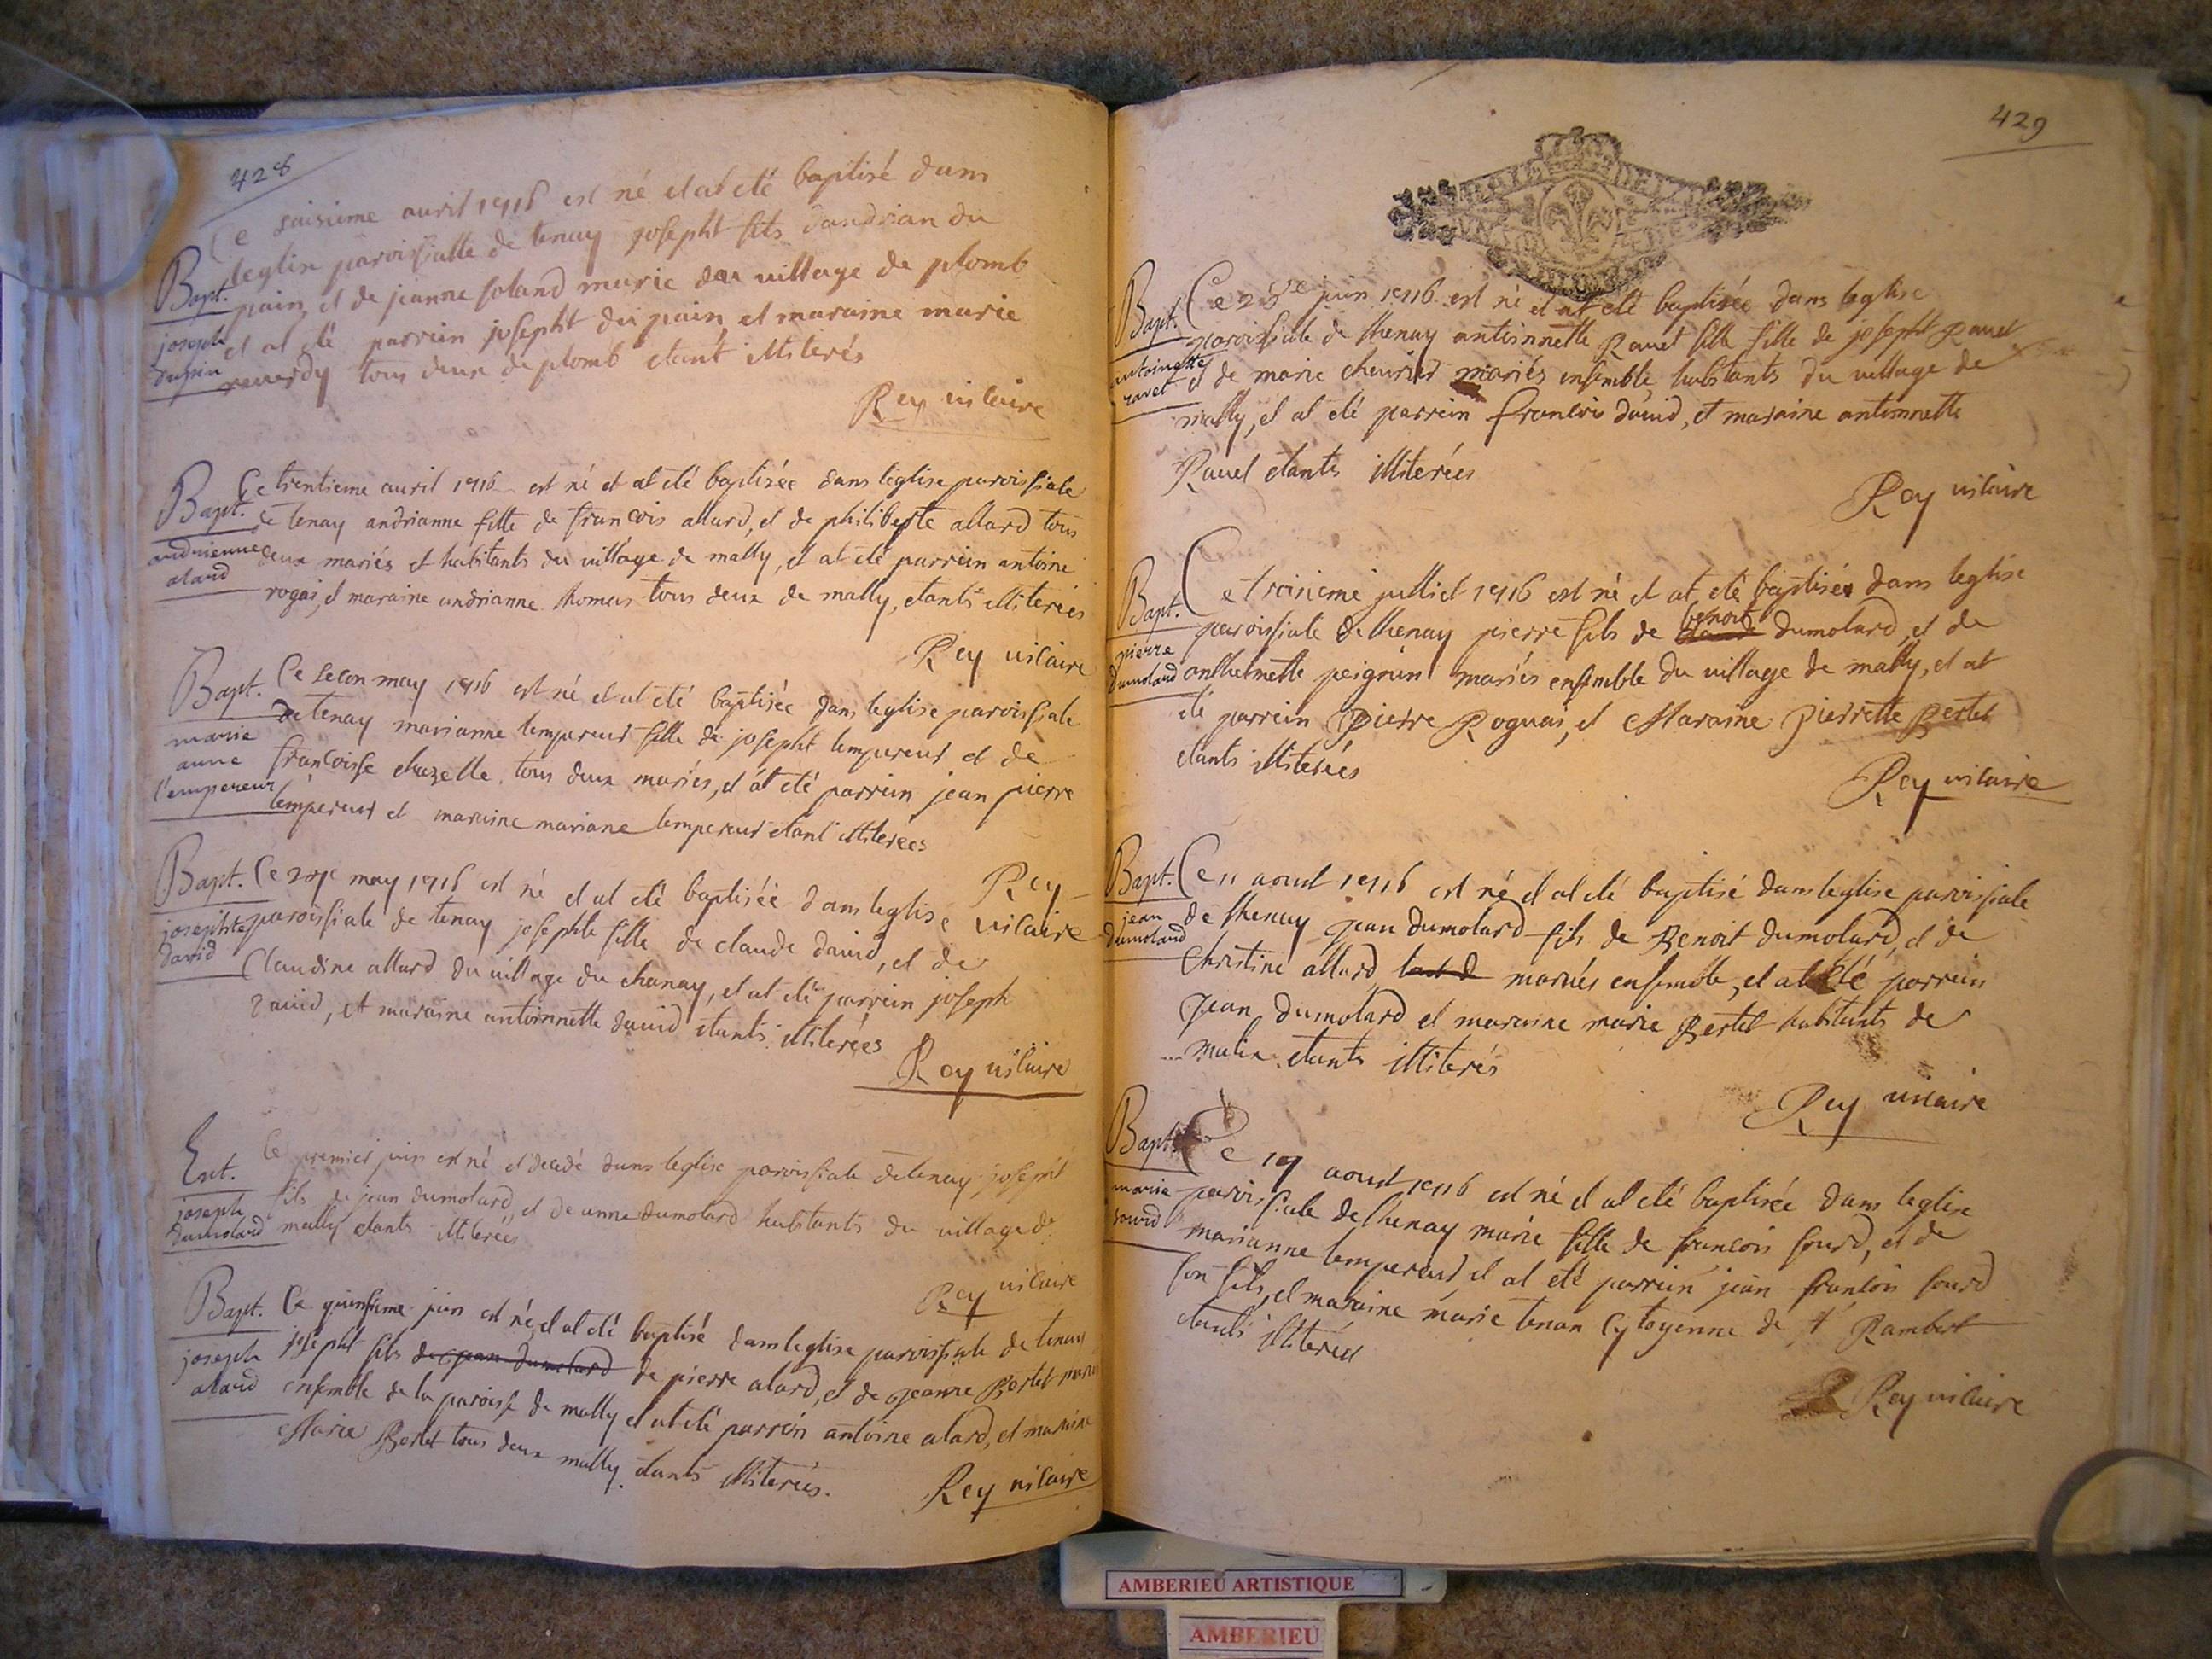 428
Ce saisieme auril 1716 est né et at eté baptisé dans
Bapt. leglise paroissialle de tenay josepht fils dandrian du
pain, et de jeanne soland marie du village de plomb
joseph dupin
et at eté parrein josepht du pain et maraine marie
reuerdy tous deux de plomb etant illiterés
Rey uicaire
Ce trentieme auril 1716 est né et at eté baptisée dans leglise paroissiale
Bapt. de tenay andrianne fille de francois allard, et de philiberte allard tous
andrienne alard
deux mariés et habitants du village de mally, et at eté parrein antoine
rogai, et maraine andrianne thomas tous deux de mally, etants illiterées
Rey uicaire
Bapt. Ce secon may 1716 est né et at eté baptisée dans leglise paroissiale
de tenay marianne lempereur fille de josepht lempereur et de
marie anne l'empereur
francoisse chazelle tous deux mariés, et at eté parrein jean pierre
lempereur et maraine mariane lempereur etant illiterées
Rey uicaire
Bapt. Ce may 1716 est né et at eté baptisée dans leglise
josephte david
paroissiale de tenay josephte fille de claude dauid, et de
Claudine allard du village du chanay, et at eté parrein joseph
dauid, et maraine antoinnette dauid etants illiterées
Rey uicaire
Ent. Ce premier juin est né et decedé dans leglise paroissiale de tenay josepht
joseph dumolard
fils de jean dumolard, et de anne dumolard habitants du village de
mally etants illiterées
Rey uicaire
Bapt. Ce quinsieme juin est né, et at eté baptisé dans leglise paroissiale de tenay
joseph alard
josepht fils de jean dumolard de pierre alard, et de jeanne Bertet mariés
ensemble de la paroisse de mally et at eté parrein antoine alard, et maraine
Marie Bertet tous deux mally. etants illiterées.
Rey uicaire
429
Bapt. Ce 28e juin 1716 est né et at eté baptisée dans leglise
antoinette ravet
paroissiale de thenay antoinnette Rauet fille fille de josepht Rauet
et de marie cheurier mariés ensemble habitants du village de
mally, et at eté parrein francois dauid, et maraine antoinnette
Rauet etants illiterées
Rey uicaire
Bapt. Ce troisieme julliet 1716 est né et at eté baptisée dans leglise
pierre dumolard
paroissiale de thenay pierre fils de benoit dumolard, et de
anthelmette peignin mariés ensemble du village de mally, et at
eté parrein Pierre Roguai, et Maraine Pierrette Bertet
etants illiterées
Rey uicaire
Bapt. Ce 11 aoust 1716 est né et at eté baptisé dans leglise paroissiale
jean dumolard
de thenay jean dumolard fils de Benoit dumolard, et de
Christine allard, mariés ensemble, et at eté parrein
Jean dumolard et maraine marie Bertet habitants de
malix etants illiterés
Rey uicaire
Bapt. Ce 19 aoust 1716 est né et at eté baptisée dans leglise
marie sourd
paroissiale de thenay marie fille de francois sourd, et de
marianne lempereur, et at eté parrein jean francois sourd
son fils, et maraine marie tenan Cytoyenne de st Rambert
etants illiterées
Rey uicaire
AMBERIEU ARTISTIQUE
AMBERIEU